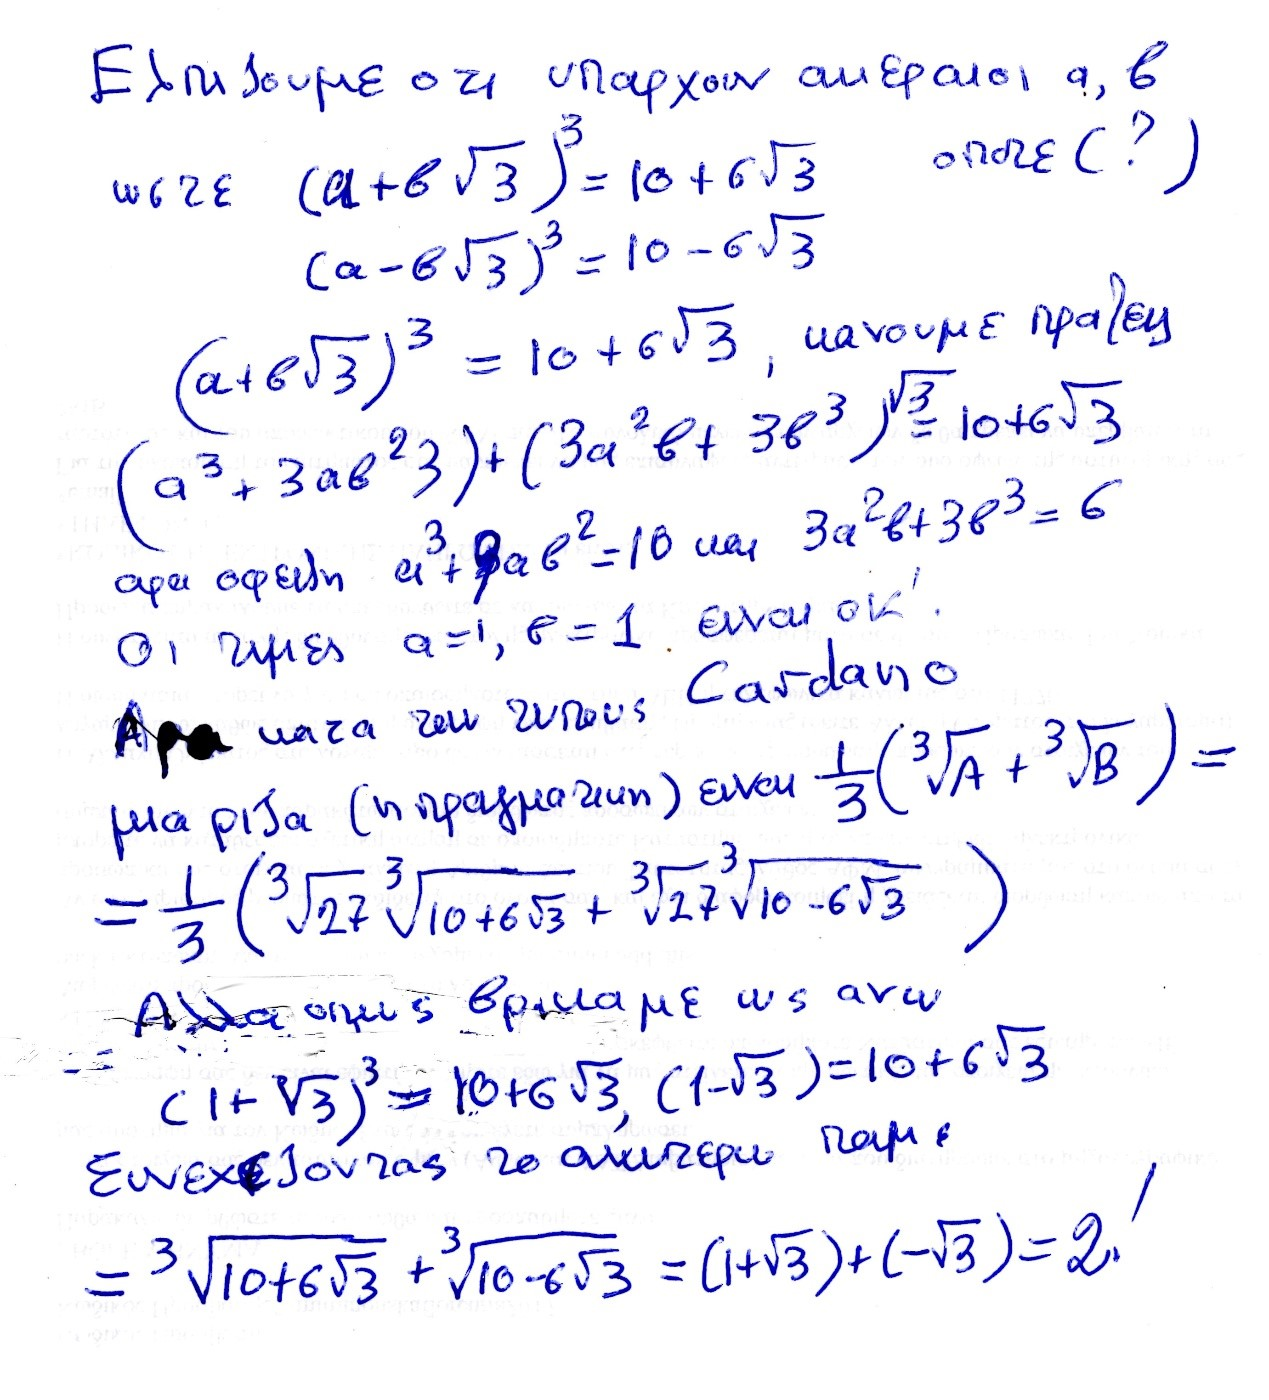 Ελπιζουμε οτι υπαρχουν ακεραιοι a, b
ωστε (a+b√3)³ = 10+6√3 οποτε (?)
(a-b√3)³ = 10-6√3
(a+b√3)³ = 10+6√3, κανουμε πραξεις
(a³+3ab²3)+(3a²b+3b³)√3 = 10+6√3
αρα οφειλει a³+9ab²=10 και 3a²b+3b³=6
Οι τιμες a=1, b=1 ειναι οκ!
Αρα κατα τους τυπους Cardano
μια ριζα (η πραγματικη) ειναι 1/3(³√A+³√B)=
=1/3(³√27 ³√10+6√3 + ³√27 ³√10-6√3)
Αλλα ομως βρηκαμε ως ανω
(1+√3)³=10+6√3, (1-√3)=10+6√3
Συνεχιζοντας το ανωτερω παμε
=³√10+6√3 + ³√10-6√3 = (1+√3)+(-√3)=2!